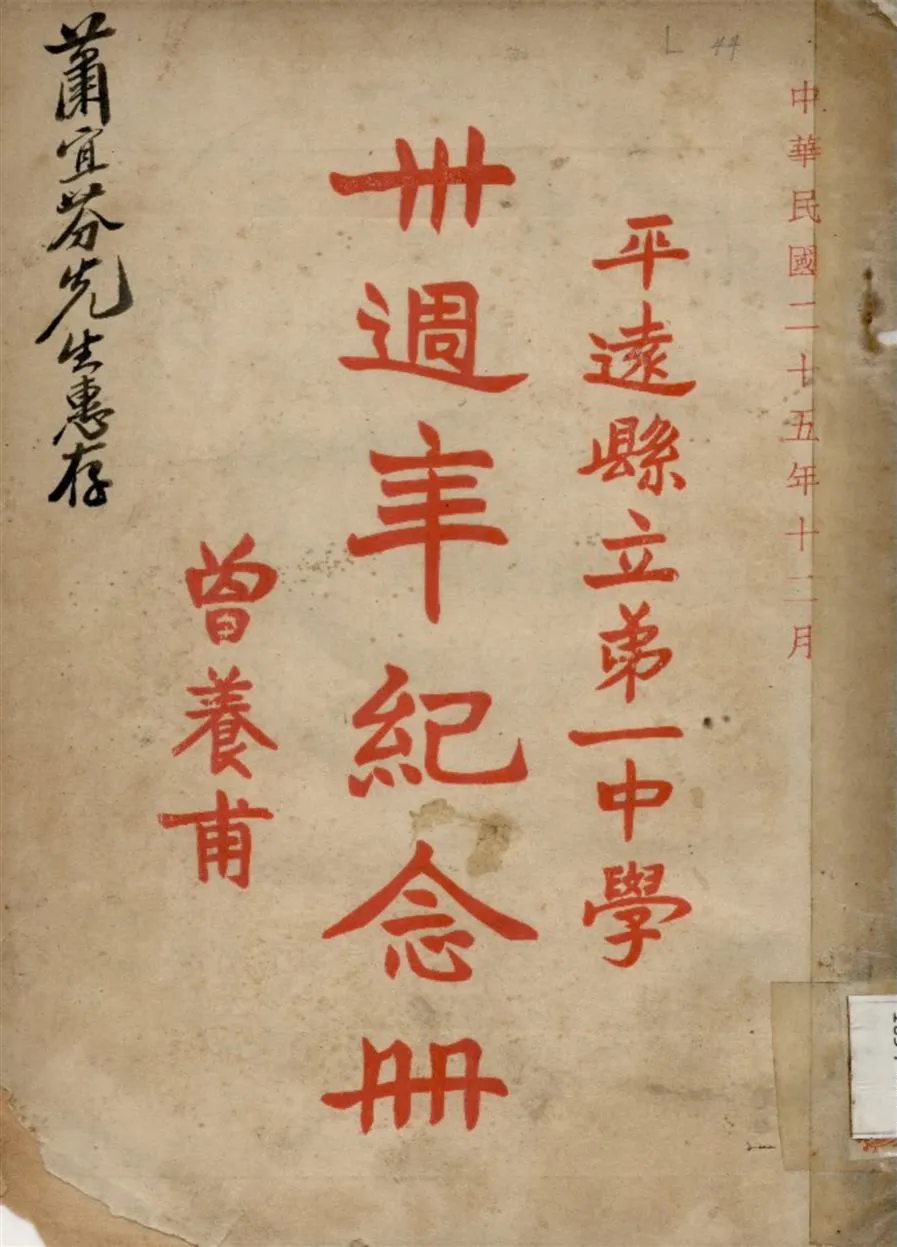 中華民國二十五年十二月
平遠縣立第一中學
卅週年紀念冊
曾養甫
蕭宜芬先生惠存
L 44